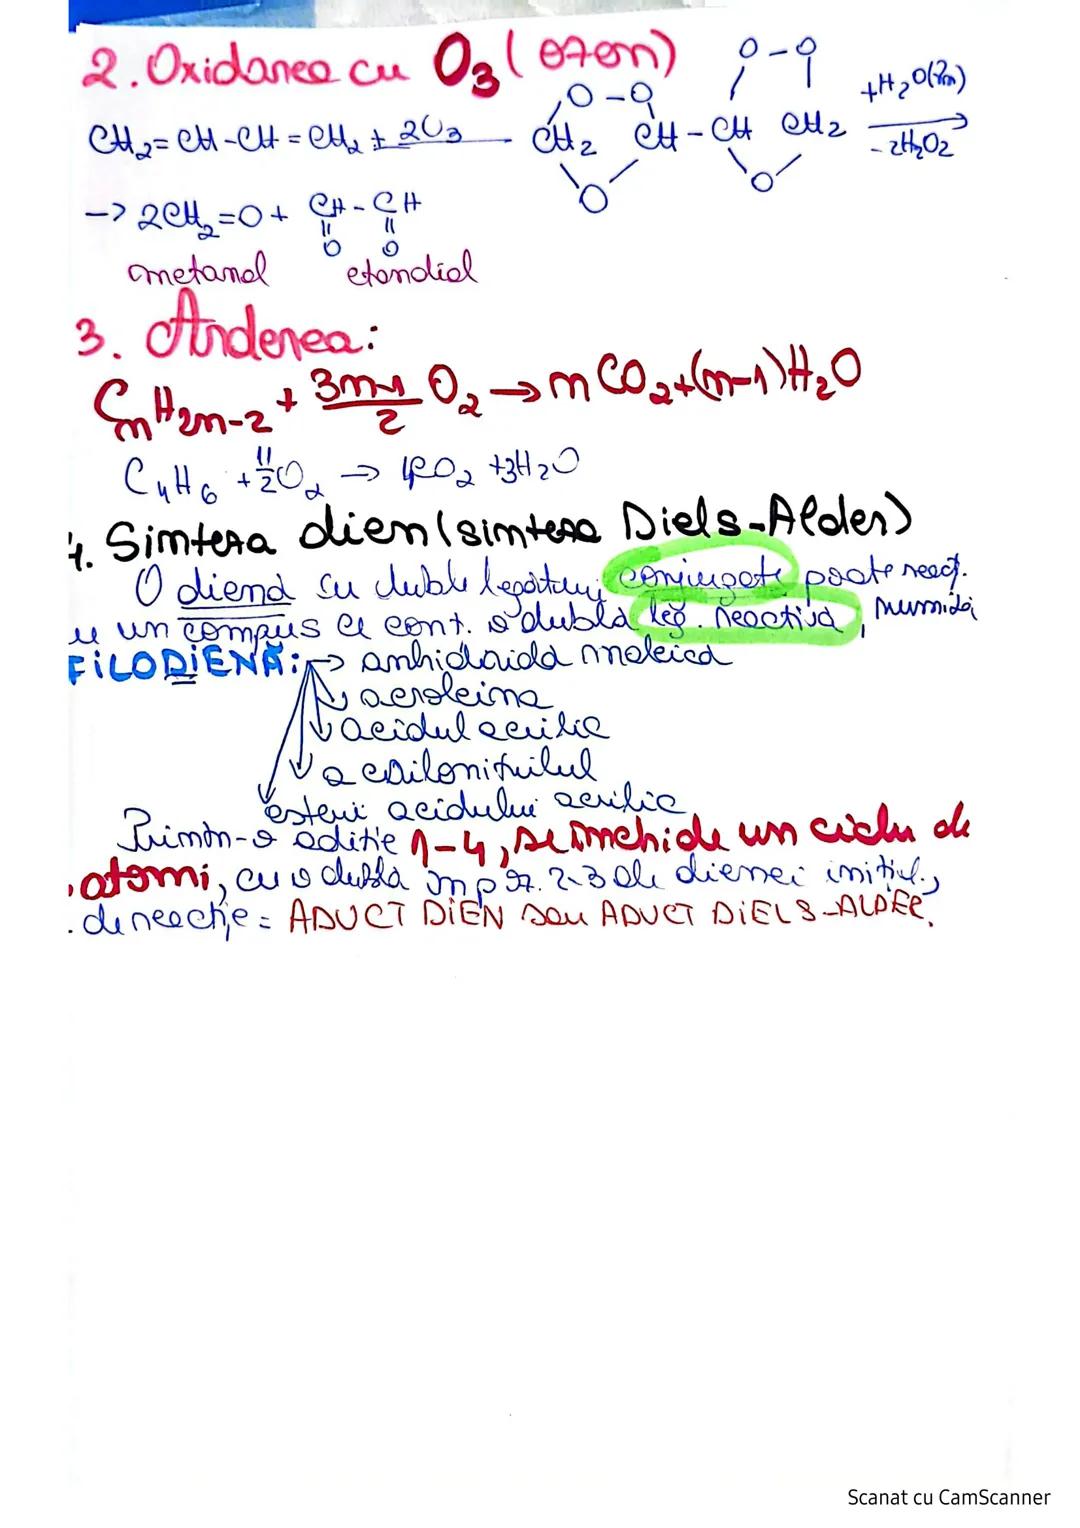 2. Oxidarea cu O₃ (ozon)
CH₂=CH-CH=CH₂ + 2O₃ CH₂ O-O O CH-CH O-O O CH₂ +H₂O(Zn) -2H₂O₂
-> 2CH₂=O + CH-CH
O O
metanal etandial
3. Arderea:
CnH2n-2 + 3n-1/2 O₂ → nCO₂+(n-1)H₂O
C₄H₆ + 11/2 O₂ → 4CO₂ +3H₂O
4. Sinteza dien (sinteza Diels-Alder)
O dienă cu duble legături conjugate poate react.
cu un compus ce cont. o dublă leg. reactivă, numită
FILODIENĂ: → anhidridă maleică
acroleina
acidul acrilic
acrilonitrilul
esteri acidului acrilic
Printr-o aditie 1-4, se închide un ciclu de
atomi, cu o dublă în poz. 2-3 ale dienei initial.,
de reacție = ADUCT DIEN sau ADUCT DIELS-ALDER.
Scanat cu CamScanner